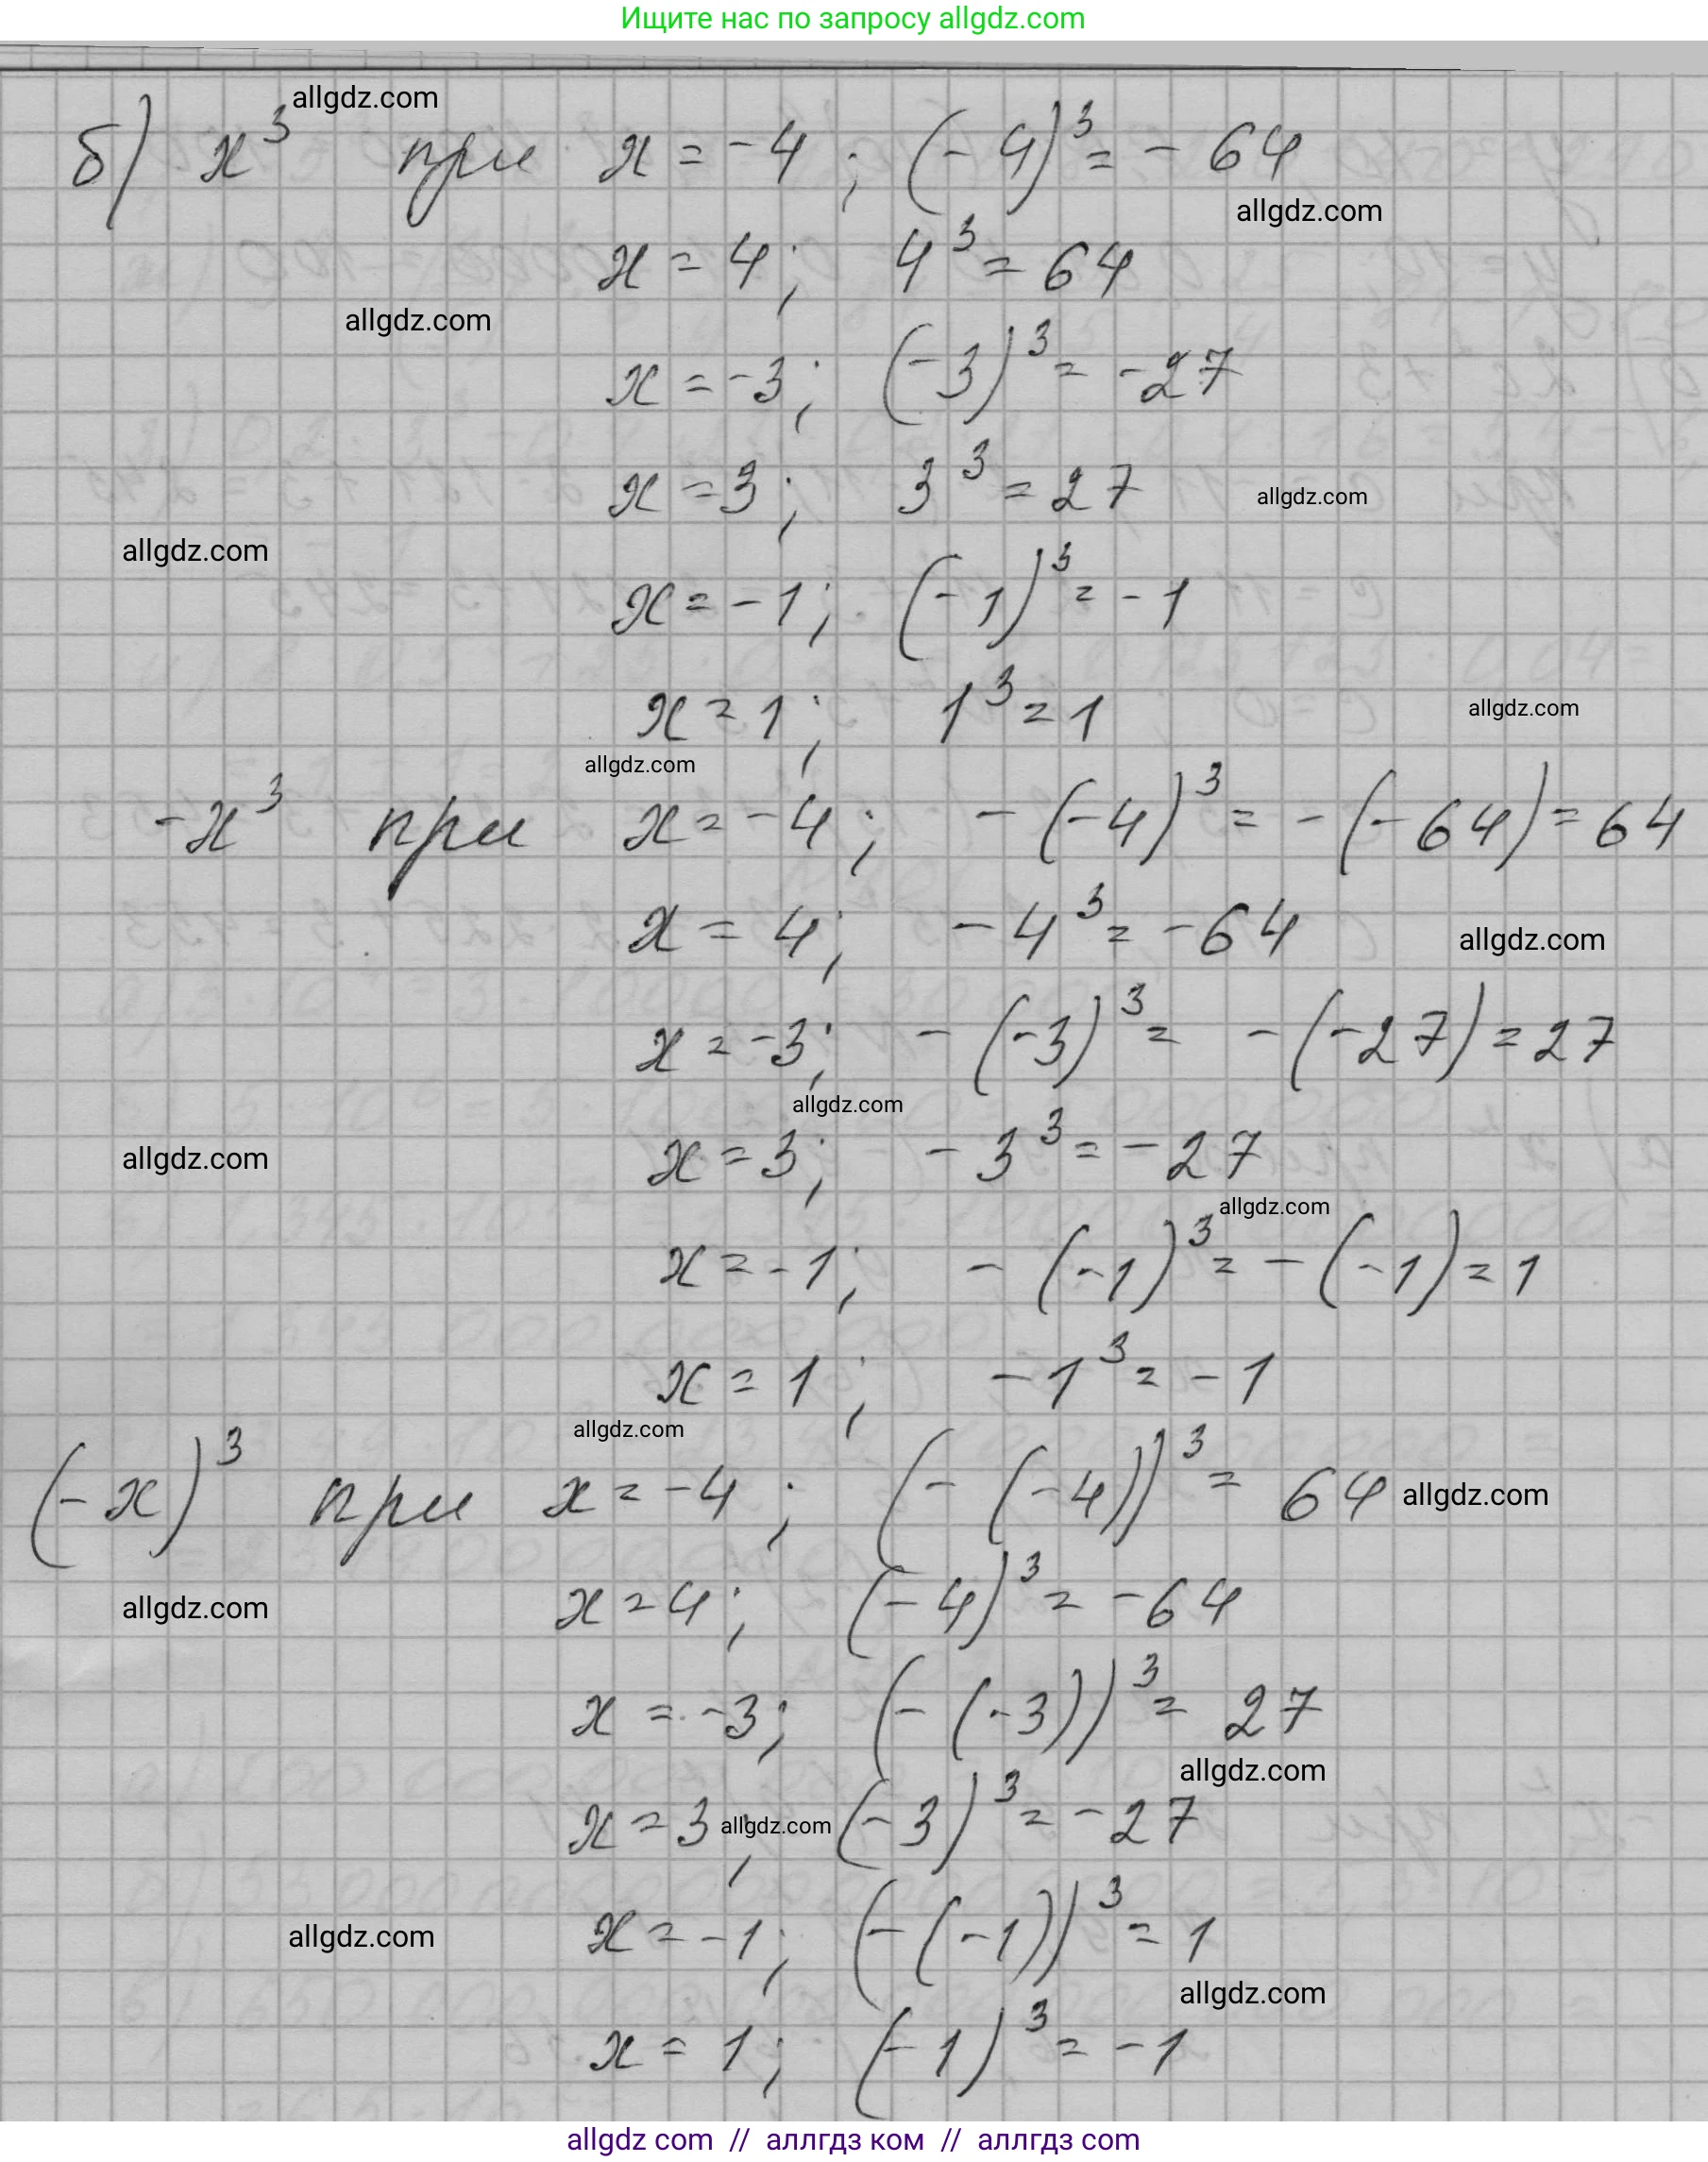 Ищите нас по запросу allgdz.com
allgdz.com
б) x³ при x = -4; (-4)³ = - 64
allgdz.com
x = 4; 4³ = 64
allgdz.com
x = -3; (-3)³ = -27
x = 3; 3³ = 27
allgdz.com
allgdz.com
x = -1; (-1)³ = -1
x = 1; 1³ = 1
allgdz.com
allgdz.com
-x³ при x = -4; -(-4)³ = -(-64) = 64
x = 4; -4³ = -64
allgdz.com
x = -3; -(-3)³ = -(-27) = 27
allgdz.com
x = 3; -3³ = -27
allgdz.com
allgdz.com
x = -1; -(-1)³ = -(-1) = 1
x = 1; -1³ = -1
allgdz.com
(-x)³ при x = -4; (-(-4))³ = 64
allgdz.com
x = 4; (-4)³ = -64
allgdz.com
x = -3; (-(-3))³ = 27
allgdz.com
x = 3; (-3)³ = -27
allgdz.com
x = -1; (-(-1))³ = 1
allgdz.com
allgdz.com
x = 1; (-1)³ = -1
allgdz com // аллгдз ком // аллгдз com